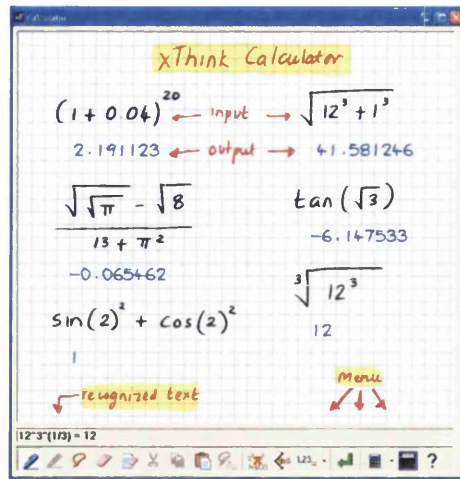 Calculator
xThink Calculator
(1 + 0.04)^20 ← input → √(12³ + 1³)
2.191123 ← output → 41.581246
(√√π - √8) / (13 + π²)
tan(√3)
-6.147533
-0.065462
∛(12³)
sin(2)² + cos(2)²
12
1
recognized text
Menu
12^3^(1/3) = 12
123
?